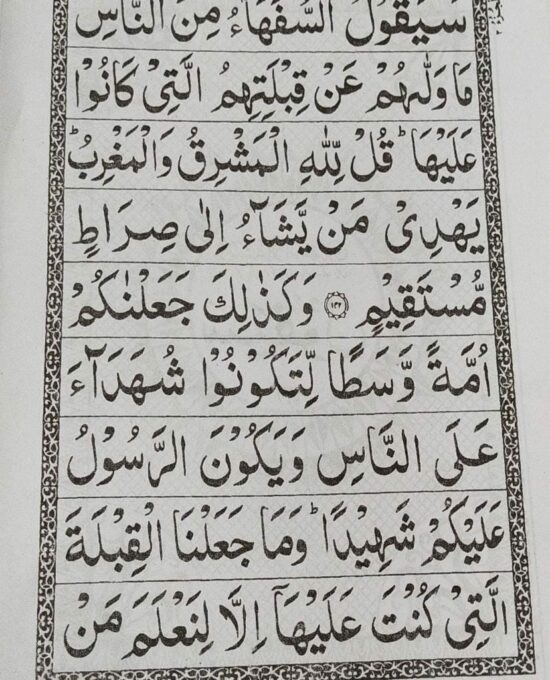 سَيَقُوْلُ السُّفَهَآءُ مِنَ النَّاسِ
مَا وَلّٰىهُمْ عَنْ قِبْلَتِهِمُ الَّتِيْ كَانُوْا
عَلَيْهَا ؕ قُلْ لِّلّٰهِ الْمَشْرِقُ وَالْمَغْرِبُ ؕ
يَهْدِيْ مَنْ يَّشَآءُ اِلٰى صِرَاطٍ
مُّسْتَقِيْمٍ ﴿۱۴۲﴾ وَكَذٰلِكَ جَعَلْنٰكُمْ
اُمَّةً وَّسَطًا لِّتَكُوْنُوْا شُهَدَآءَ
عَلَى النَّاسِ وَيَكُوْنَ الرَّسُوْلُ
عَلَيْكُمْ شَهِيْدًا ؕ وَمَا جَعَلْنَا الْقِبْلَةَ
الَّتِيْ كُنْتَ عَلَيْهَاۤ اِلَّا لِنَعْلَمَ مَنْ